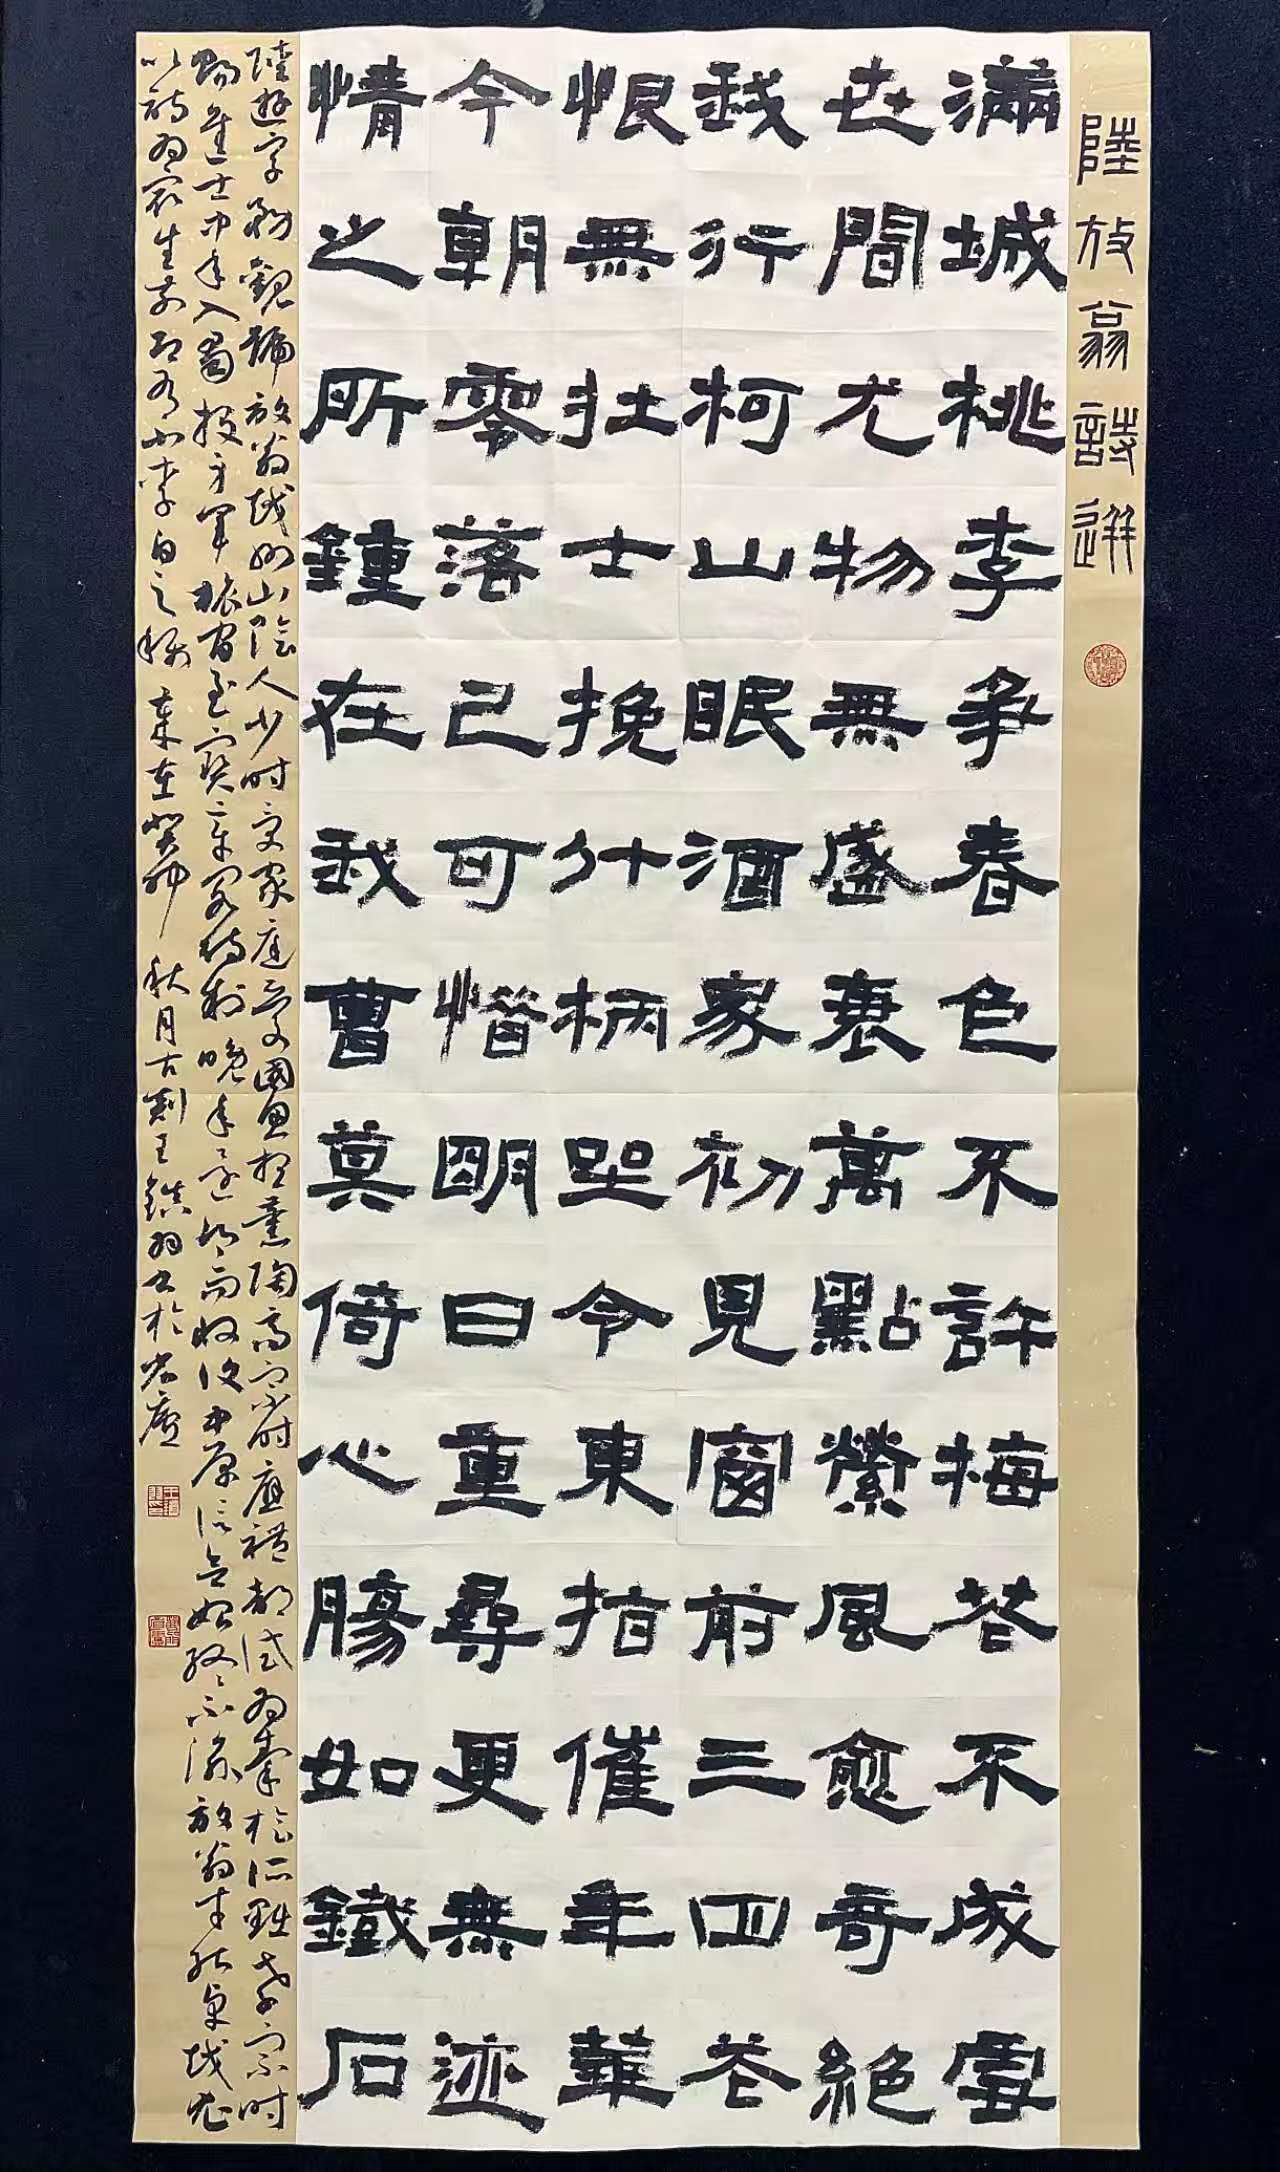 陸放翁詩選
滿城桃李爭春色不許梅花不成雪
世間尤物無盛衰萬點縈風愈奇絕
我行柯山眠酒家初見窗前三四花
恨無壯士挽斗柄坐令東指催年華
今朝零落已可惜明日重尋更無迹
情之所鍾在我曹莫倚心腸如鐵石
陸游字務觀號放翁越州山陰人少時受家庭愛國思想熏陶高宗時應禮部試為秦檜所黜孝宗時
賜進士中年入蜀投身軍旅官至寶章閣待制晚年退而收復中原信念始終不渝放翁才
以詩為最生前即有小李白之稱歲在癸卯秋月古剡王書於廬